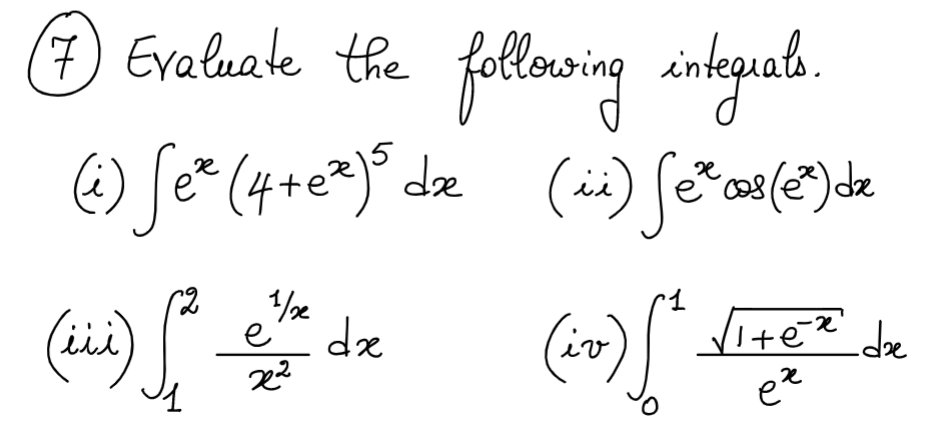 ⑦ Evaluate the following integrals.
(i) ∫eˣ (4+eˣ)⁵ dx (ii) ∫eˣ cos(eˣ)dx
(iii) ∫₁² e^(1/x)/x² dx (iv) ∫₀¹ √(1+e⁻ˣ)/eˣ dx